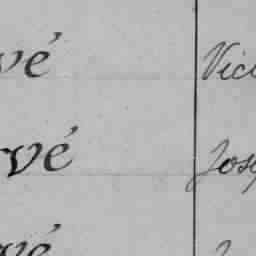 vé Vic
rvé Jos
vé